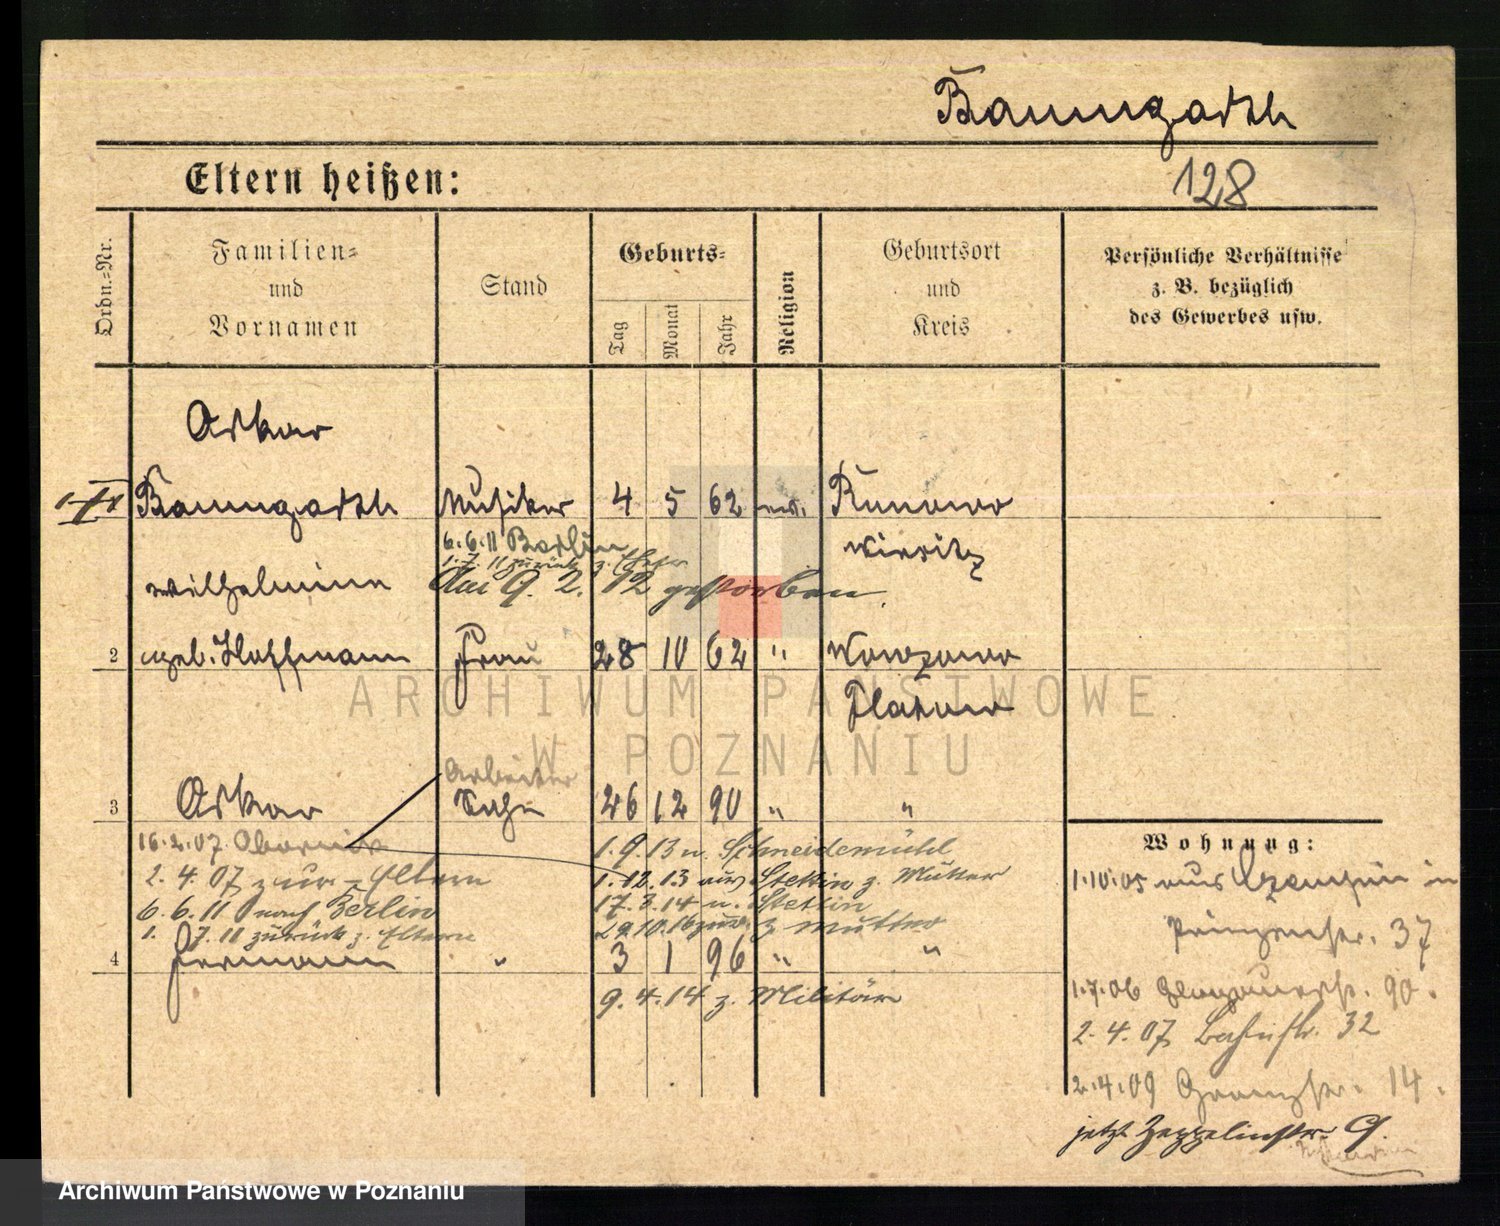 Baumgarth
Eltern heißen:
128
Ordn.-Nr.
Familien-
und
Vornamen
Stand
Geburts-
Tag
Monat
Jahr
Religion
Geburtsort
und
Kreis
Persönliche Verhältnisse
z. B. bezüglich
des Gewerbes usw.
Oskar
Baumgarth Musiker 4 5 62 Runowo
6.6.11 Berlin Wirsitz
1.7.11 zurück z.
Wilhelmine Am 9. 2. 12 gestorben.
2 geb. Hoffmann Frau 28 10 62 "
Flatow
Arbeiter
3 Oskar Sohn 26 12 90 " "
16.2.07 Obornik
2.4.07 zur. Eltern
6.6.11 nach Berlin
1.7.11 zurück z. Eltern
1.9.13 n. Schneidemühl
1.12.13 aus Stettin z. Mutter
17.3.14 n. Stettin
29.10.16 zur. z Mutter
4 Hermann " 3 1 96 " "
9.4.14 z. Militär
Wohnung:
1.10.05 aus in
Prinzenstr. 37
1.7.06 Glogauerstr. 90.
2.4.07 Bahnstr. 32
2.4.09 Grenzstr. 14.
jetzt Zeppelinstr. 9.
ARCHIWUM PAŃSTWOWE
W POZNANIU
Archiwum Państwowe w Poznaniu